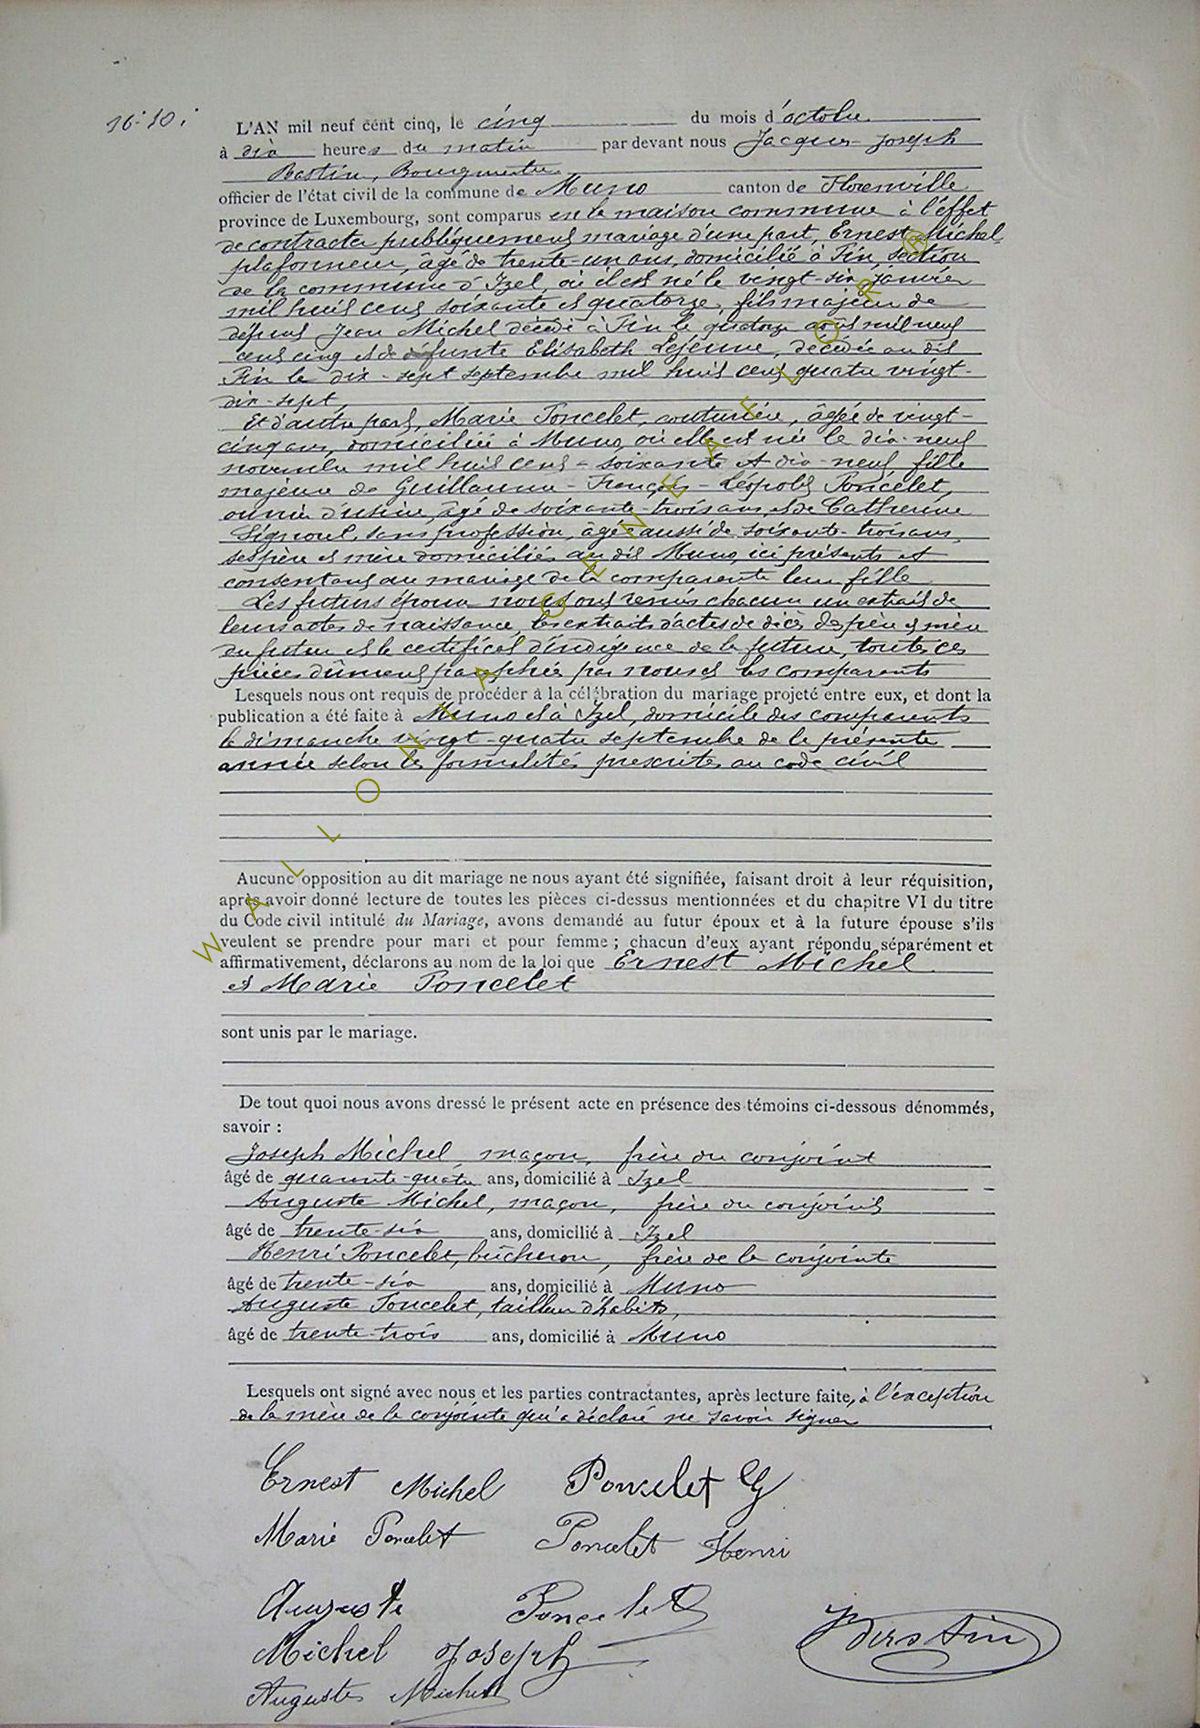 16·10·
L'AN mil neuf cent cinq, le cinq du mois d'octobre
à dix heures du matin par devant nous Jacques-Joseph
Bastin, Bourgmestre
officier de l'état civil de la commune de Muno canton de Florenville
province de Luxembourg, sont comparus en la maison commune à l'effet
de contracter publiquement mariage d'une part, Ernest Michel,
plafonneur, âgé de trente-un ans, domicilié à Pin, section
de la commune d'Izel, où il est né le vingt-six janvier
mil huit cent soixante et quatorze, fils majeur de
défunt Jean Michel décédé à Pin le quatorze août mil neuf
cent cinq et de défunte Elisabeth Lejeune, décédée au dit
Pin le dix-sept septembre mil huit cent quatre vingt-
dix-sept
Et d'autre part, Marie Poncelet, couturière, âgée de vingt-
cinq ans, domiciliée à Muno, où elle est née le dix-neuf
novembre mil huit cent-soixante et dix-neuf fille
majeure de Guillaume-François-Léopold Poncelet,
ouvrier d'usine, âgé de soixante-trois ans, et de Catherine
Signoul, sans profession, âgée aussi de soixante-trois ans,
ses père et mère domiciliés au dit Muno, ici présents et
consentant au mariage de la comparante leur fille
Les futurs époux nous ont remis chacun un extrait de
leurs actes de naissance, les extraits d'actes de décès des père et mère
du futur et le certificat d'indigence de la future, toutes ces
pièces dûment paraphées par nous et les comparants
Lesquels nous ont requis de procéder à la célébration du mariage projeté entre eux, et dont la
publication a été faite à Muno et à Izel, domicile des comparants
le dimanche vingt-quatre septembre de la présente
année selon les formalités prescrites au code civil
Aucune opposition au dit mariage ne nous ayant été signifiée, faisant droit à leur réquisition,
après avoir donné lecture de toutes les pièces ci-dessus mentionnées et du chapitre VI du titre
du Code civil intitulé du Mariage, avons demandé au futur époux et à la future épouse s'ils
veulent se prendre pour mari et pour femme ; chacun d'eux ayant répondu séparément et
affirmativement, déclarons au nom de la loi que Ernest Michel
et Marie Poncelet
sont unis par le mariage.
De tout quoi nous avons dressé le présent acte en présence des témoins ci-dessous dénommés,
savoir :
Joseph Michel, maçon, frère du conjoint
âgé de quarante-quatre ans, domicilié à Izel
Auguste Michel, maçon, frère du conjoint
âgé de trente-six ans, domicilié à Izel
Henri Poncelet, bûcheron, frère de la conjointe
âgé de trente-six ans, domicilié à Muno
Auguste Poncelet, tailleur d'habits,
âgé de trente-trois ans, domicilié à Muno
Lesquels ont signé avec nous et les parties contractantes, après lecture faite, à l'exception
de la mère de la conjointe qui a déclaré ne savoir signer
Ernest Michel Poncelet G
Marie Poncelet Poncelet Henri
Auguste Poncelet
Michel Joseph Bastin
Auguste Michel
WALLONIA GENEALOR®